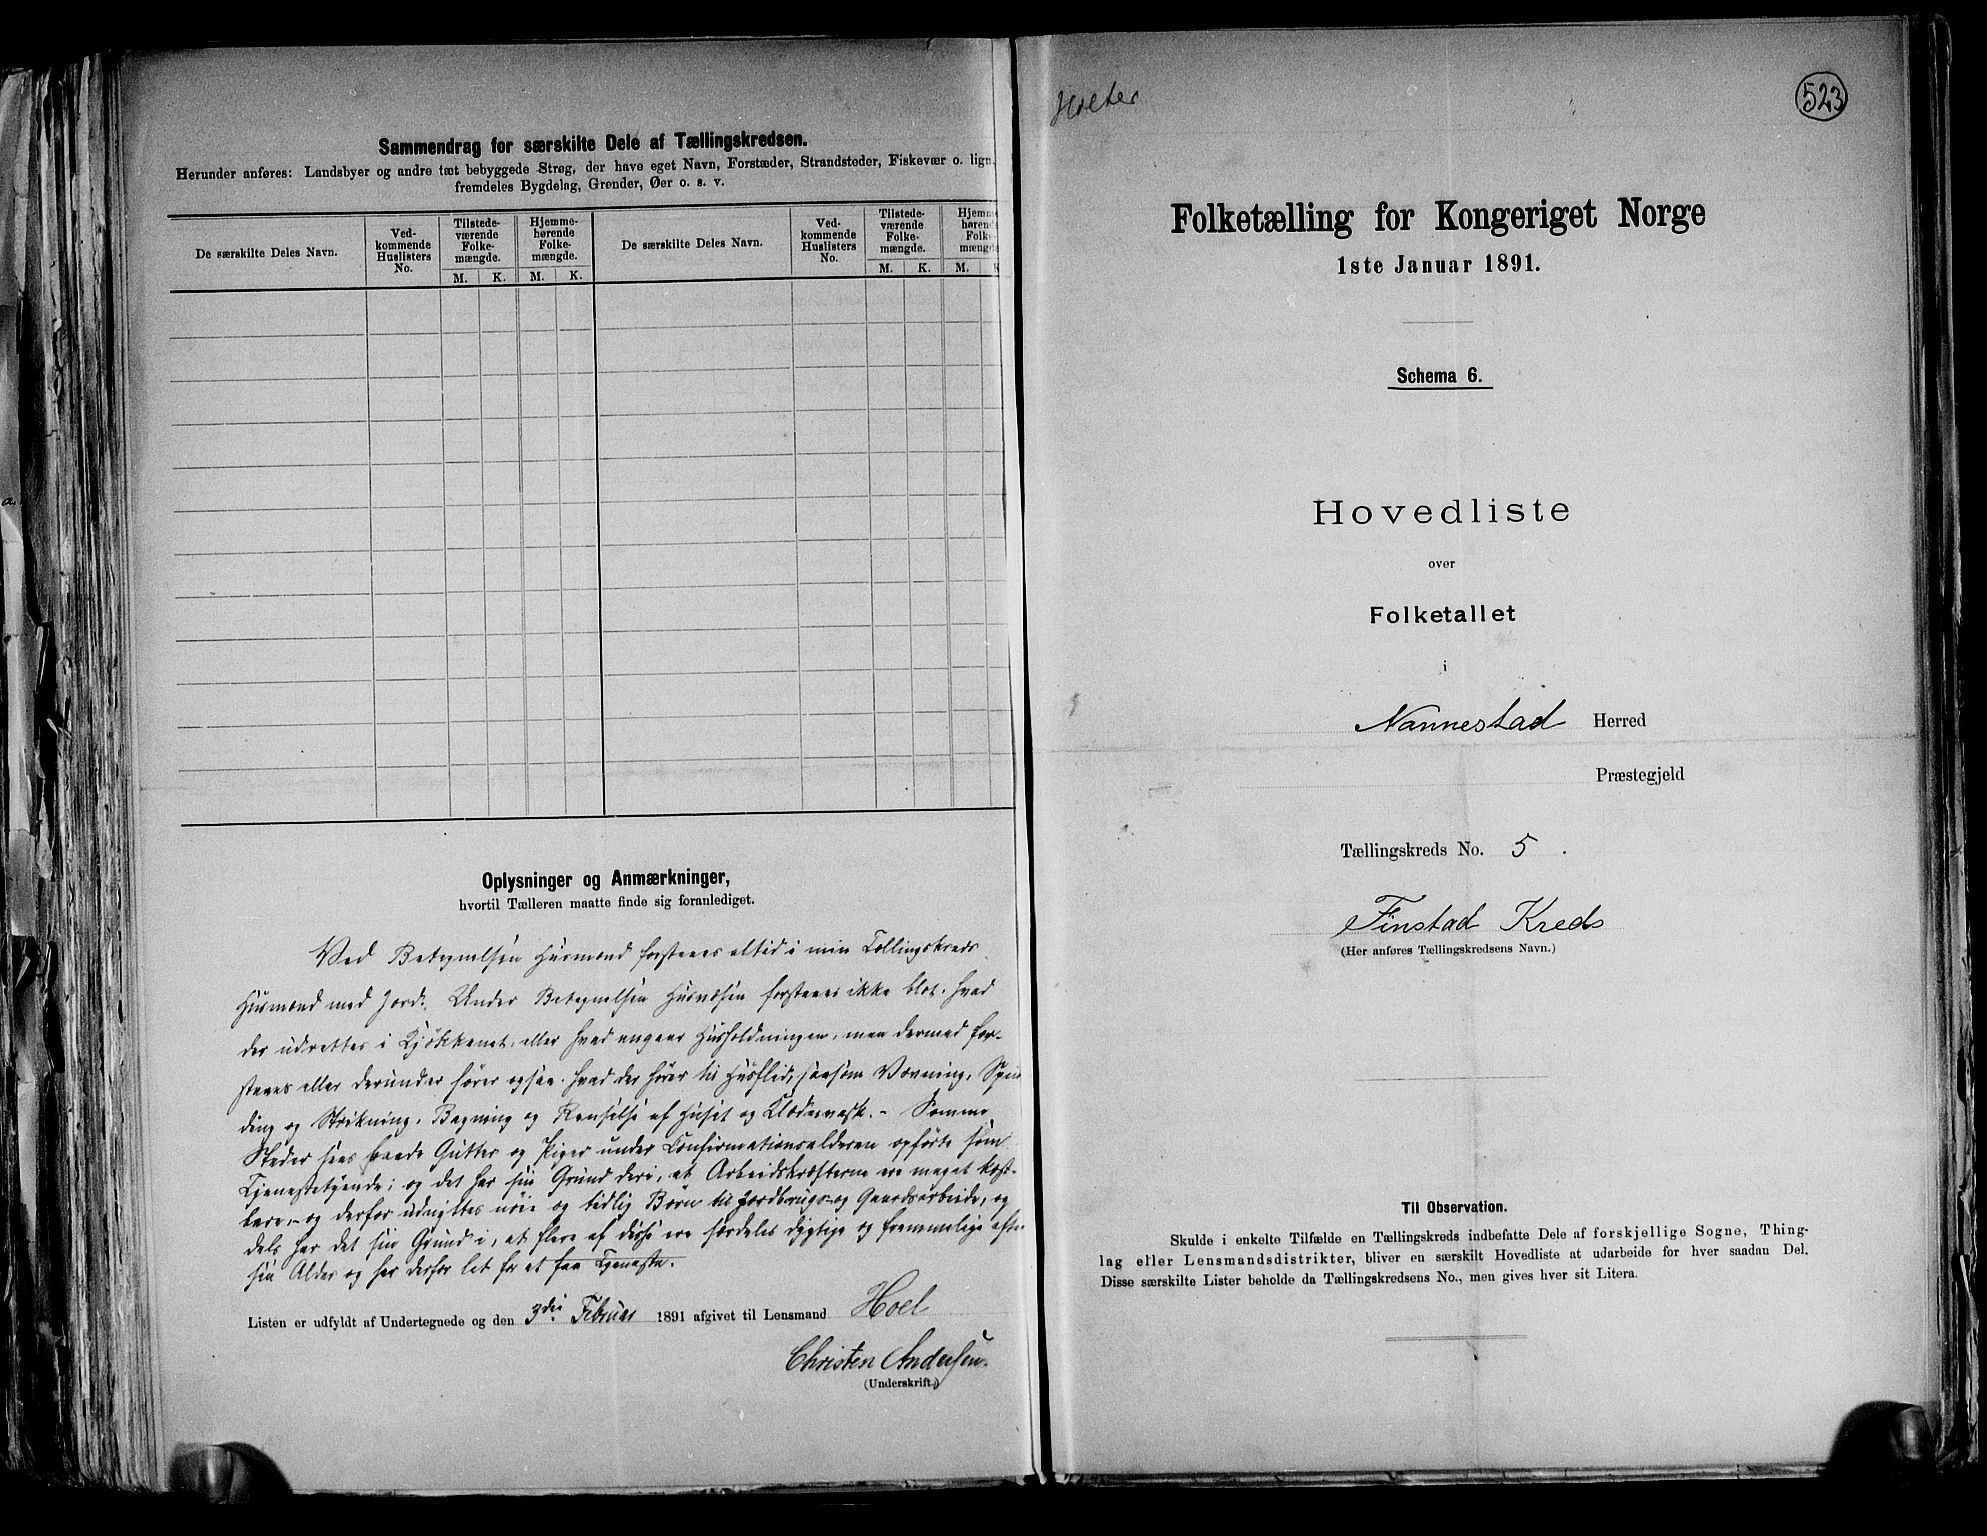 Sammendrag for særskilte Dele af Tællingskredsen.
Herunder anføres: Landsbyer og andre tæt bebyggede Strøg, der have eget Navn, Forstæder, Strandsteder, Fiskevær o. lign.
fremdeles Bygdelag, Grender, Øer o. s. v.
De særskilte Deles Navn.
Ved-
kommende
Huslisters
No.
Tilstede-
værende
Folke-
mængde.
M. K.
Hjemme-
hørende
Folke-
mængde.
M. K.
De særskilte Deles Navn.
Ved-
kommende
Huslisters
No.
Tilstede-
værende
Folke-
mængde.
M. K.
Hjemme
hørende
Folke
mængde
M. K
Oplysninger og Anmærkninger,
hvortil Tælleren maatte finde sig foranlediget.
Ved Betegnelsen Husmand forstaaes altid i min Tællingskreds
Husmand med Jord. Under Betegnelsen Husvæsen forstaaes ikke blot, hvad
der udrettes i Kjøkkenet, eller hvad angaar Husholdningen, men dermed for-
staaes eller derunder hører ogsaa, hvad der hører til Husflid, saasom Vævning, Spin
ding og Strikning, Bagning og Renselse af Huset og Klædervask. - Somme
Steder sees baade Gutter og Piger under Confirmationsalderen opførte som
Tjenestetyende; og det har sin Grund deri, at Arbeidskræfterne ere meget kost-
bare, - og derfor udnyttes nøie og tidlig Børn til Jordbrugs- og Gaardsarbeide, og
dels har det sin Grund i, at flere af disse ere særdeles dygtige og fremmelige efter
sin Alder og har derfor let for at faa Tjeneste.
Listen er udfyldt af Undertegnede og den 3die Februar 1891 afgivet til Lensmand Hoel
Christen Andersen.
(Underskrift.)
Holter
523
Folketælling for Kongeriget Norge
1ste Januar 1891.
Schema 6.
Hovedliste
over
Folketallet
i
Nannestad Herred
Præstegjeld
Tællingskreds No. 5.
Finstad Kreds
(Her anføres Tællingskredsens Navn.)
Til Observation.
Skulde i enkelte Tilfælde en Tællingskreds indbefatte Dele af forskjellige Sogne, Thing-
lag eller Lensmandsdistrikter, bliver en særskilt Hovedliste at udarbeide for hver saadan Del.
Disse særskilte Lister beholde da Tællingskredsens No., men gives hver sit Litera.